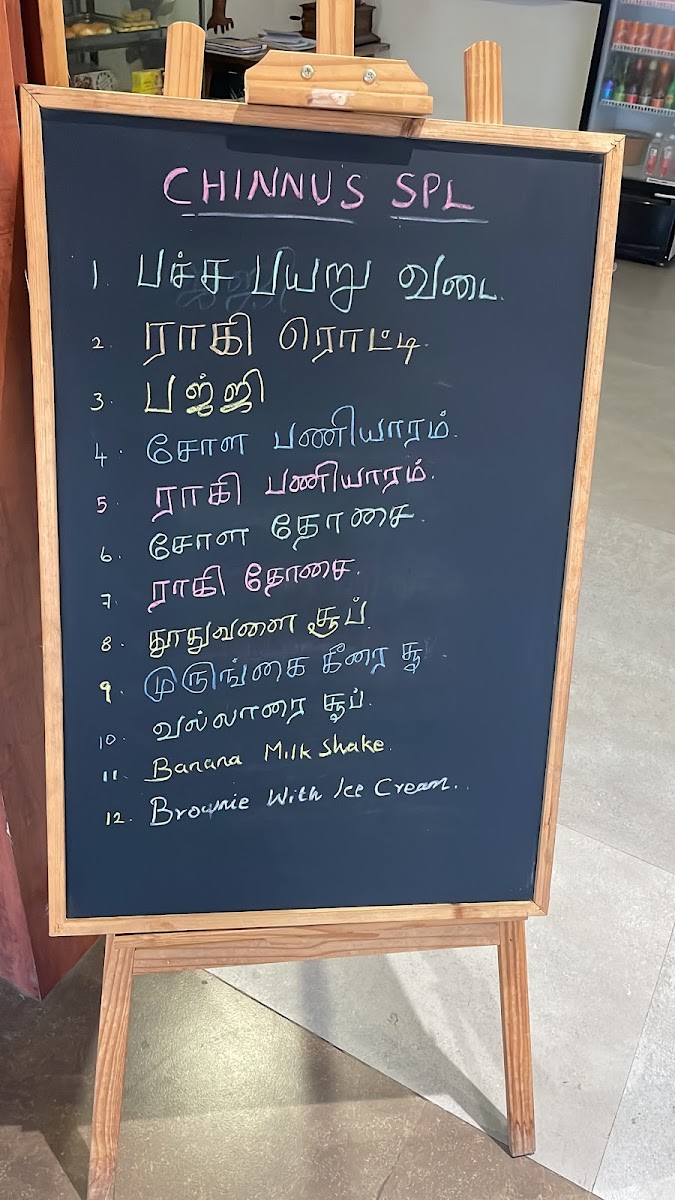 CHINNUS SPL
1. பச்ச பயறு வடை.
2. ராகி ரொட்டி.
3. பஜ்ஜி
4. சோள பணியாரம்.
5. ராகி பணியாரம்.
6. சோள தோசை.
7. ராகி தோசை.
8. தூதுவளை சூப்.
9. முருங்கை கீரை சூ
10. வல்லாரை சூப்.
11. Banana Milk Shake.
12. Brownie With Ice Cream..